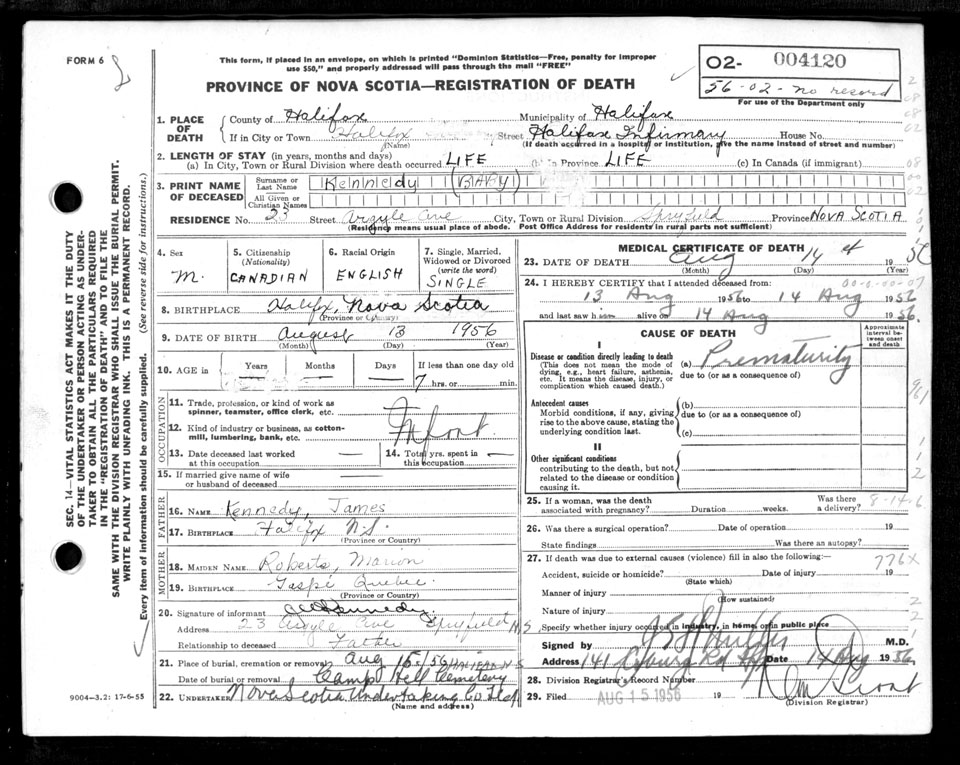 FORM 6
This form, if placed in an envelope, on which is printed "Dominion Statistics—Free, penalty for improper
use $50," and properly addressed will pass through the mail "FREE"
PROVINCE OF NOVA SCOTIA—REGISTRATION OF DEATH
O2- 004120
56-02-no record
For use of the Department only
SEC. 14—VITAL STATISTICS ACT MAKES IT THE DUTY
OF THE UNDERTAKER OR PERSON ACTING AS UNDER-
TAKER TO OBTAIN ALL THE PARTICULARS REQUIRED
IN THE "REGISTRATION OF DEATH" AND TO FILE THE
SAME WITH THE DIVISION REGISTRAR WHO SHALL ISSUE THE BURIAL PERMIT.
WRITE PLAINLY WITH UNFADING INK. THIS IS A PERMANENT RECORD.
Every item of information should be carefully supplied. (See reverse side for instructions.)
1. PLACE OF DEATH County of Halifax Municipality of Halifax
If in City or Town Halifax (Name) Street Halifax Infirmary House No.
(If death occurred in a hospital or institution, give the name instead of street and number)
2. LENGTH OF STAY (in years, months and days)
(a) In City, Town or Rural Division where death occurred LIFE (b) In Province LIFE (c) In Canada (if immigrant)
3. PRINT NAME OF DECEASED Surname or Last Name Kennedy (BABY)
All Given or Christian Names
RESIDENCE No. 23 Street Argyle Ave City, Town or Rural Division Spryfield Province NOVA SCOTIA
(Residence means usual place of abode. Post Office Address for residents in rural parts not sufficient)
4. Sex M.
5. Citizenship (Nationality) CANADIAN
6. Racial Origin ENGLISH
7. Single, Married, Widowed or Divorced (write the word) SINGLE
8. BIRTHPLACE Halifax, Nova Scotia
(Province or Country)
9. DATE OF BIRTH August 13 1956
(Month) (Day) (Year)
10. AGE Years Months Days If less than one day old
7 hrs. or min.
OCCUPATION
11. Trade, profession, or kind of work as
spinner, teamster, office clerk, etc.
Infant
12. Kind of industry or business, as cotton-
mill, lumbering, bank, etc.
13. Date deceased last worked at this occupation
14. Total yrs. spent in this occupation
15. If married give name of wife
or husband of deceased
FATHER
16. NAME Kennedy, James
17. BIRTHPLACE Halifax N.S.
(Province or Country)
MOTHER
18. MAIDEN NAME Roberts, Marion
19. BIRTHPLACE Gaspé Quebec
(Province or Country)
20. Signature of informant Kennedy
Address 23 Argyle Ave Spryfield N.S
Relationship to deceased Father
21. Place of burial, cremation or removal Aug 15/56 HALIFAX N S
Date of burial or removal Camp Hill Cemetery
22. UNDERTAKER Nova Scotia Undertaking Co Ltd
(Name and address)
9004-3.2: 17-6-55
MEDICAL CERTIFICATE OF DEATH
23. DATE OF DEATH Aug 14 1956
(Month) (Day) (Year)
24. I HEREBY CERTIFY that I attended deceased from:
13 Aug 1956 to 14 Aug 1956
and last saw him alive on 14 Aug 1956.
CAUSE OF DEATH
Approximate interval between onset and death
I
Disease or condition directly leading to death
(This does not mean the mode of
dying, e.g., heart failure, asthenia,
etc. It means the disease, injury, or
complication which caused death.)
(a) Prematurity
due to (or as a consequence of)
Antecedent causes
Morbid conditions, if any, giving
rise to the above cause, stating the
underlying condition last.
(b)
due to (or as a consequence of)
(c)
II
Other significant conditions
contributing to the death, but not
related to the disease or condition
causing it.
25. If a woman, was the death associated with pregnancy? Duration weeks. Was there a delivery?
8-14-6
26. Was there a surgical operation? Date of operation 19
State findings Was there an autopsy?
27. If death was due to external causes (violence) fill in also the following:—
776X
Accident, suicide or homicide? Date of injury 19
(State which)
Manner of injury
(How sustained)
Nature of injury
Specify whether injury occurred in industry, in home, or in public place
Signed by M.D.
Address 141 Rd Date 14 Aug 1956
28. Division Registrar's Record Number
29. Filed AUG 15 1956 19
(Division Registrar)